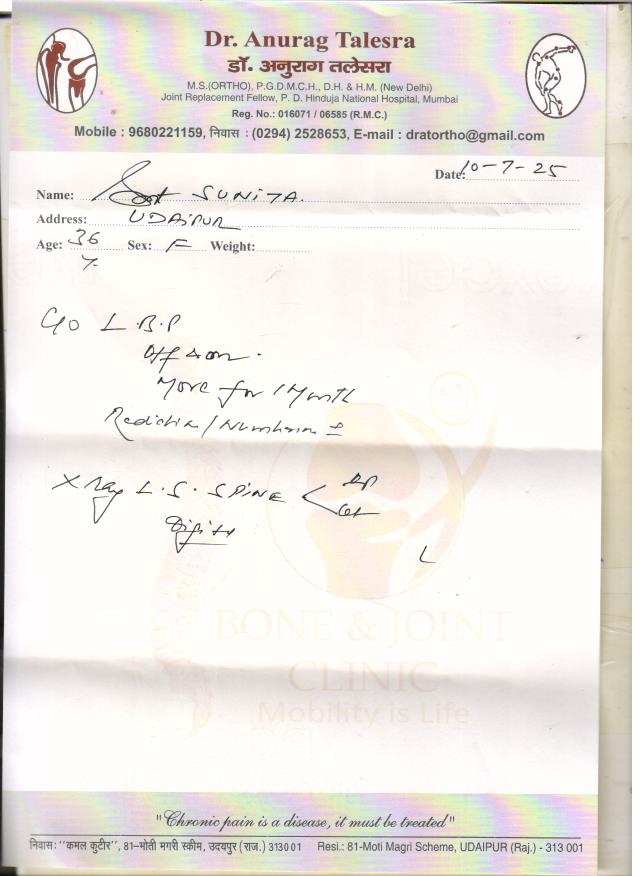 Dr. Anurag Talesra
डॉ. अनुराग तलेसरा
M.S.(ORTHO), P.G.D.M.C.H., D.H. & H.M. (New Delhi)
Joint Replacement Fellow, P. D. Hinduja National Hospital, Mumbai
Reg. No.: 016071 / 06585 (R.M.C.)
Mobile : 9680221159, निवास : (0294) 2528653, E-mail : dratortho@gmail.com
Date: 10-7-25
Name: SUNITA.
Address: UDAIPUR
Age: 36 Sex: F Weight:
C/O L.B.P
Off & on.
More for 1 Month
/ Numbness ±
X Ray L.S. SPINE < AP
Lat
BONE & JOINT
CLINIC
Mobility is Life
"Chronic pain is a disease, it must be treated"
निवास: "कमल कुटीर", 81-मोती मगरी स्कीम, उदयपुर (राज.) 313001 Resi.: 81-Moti Magri Scheme, UDAIPUR (Raj.) - 313 001